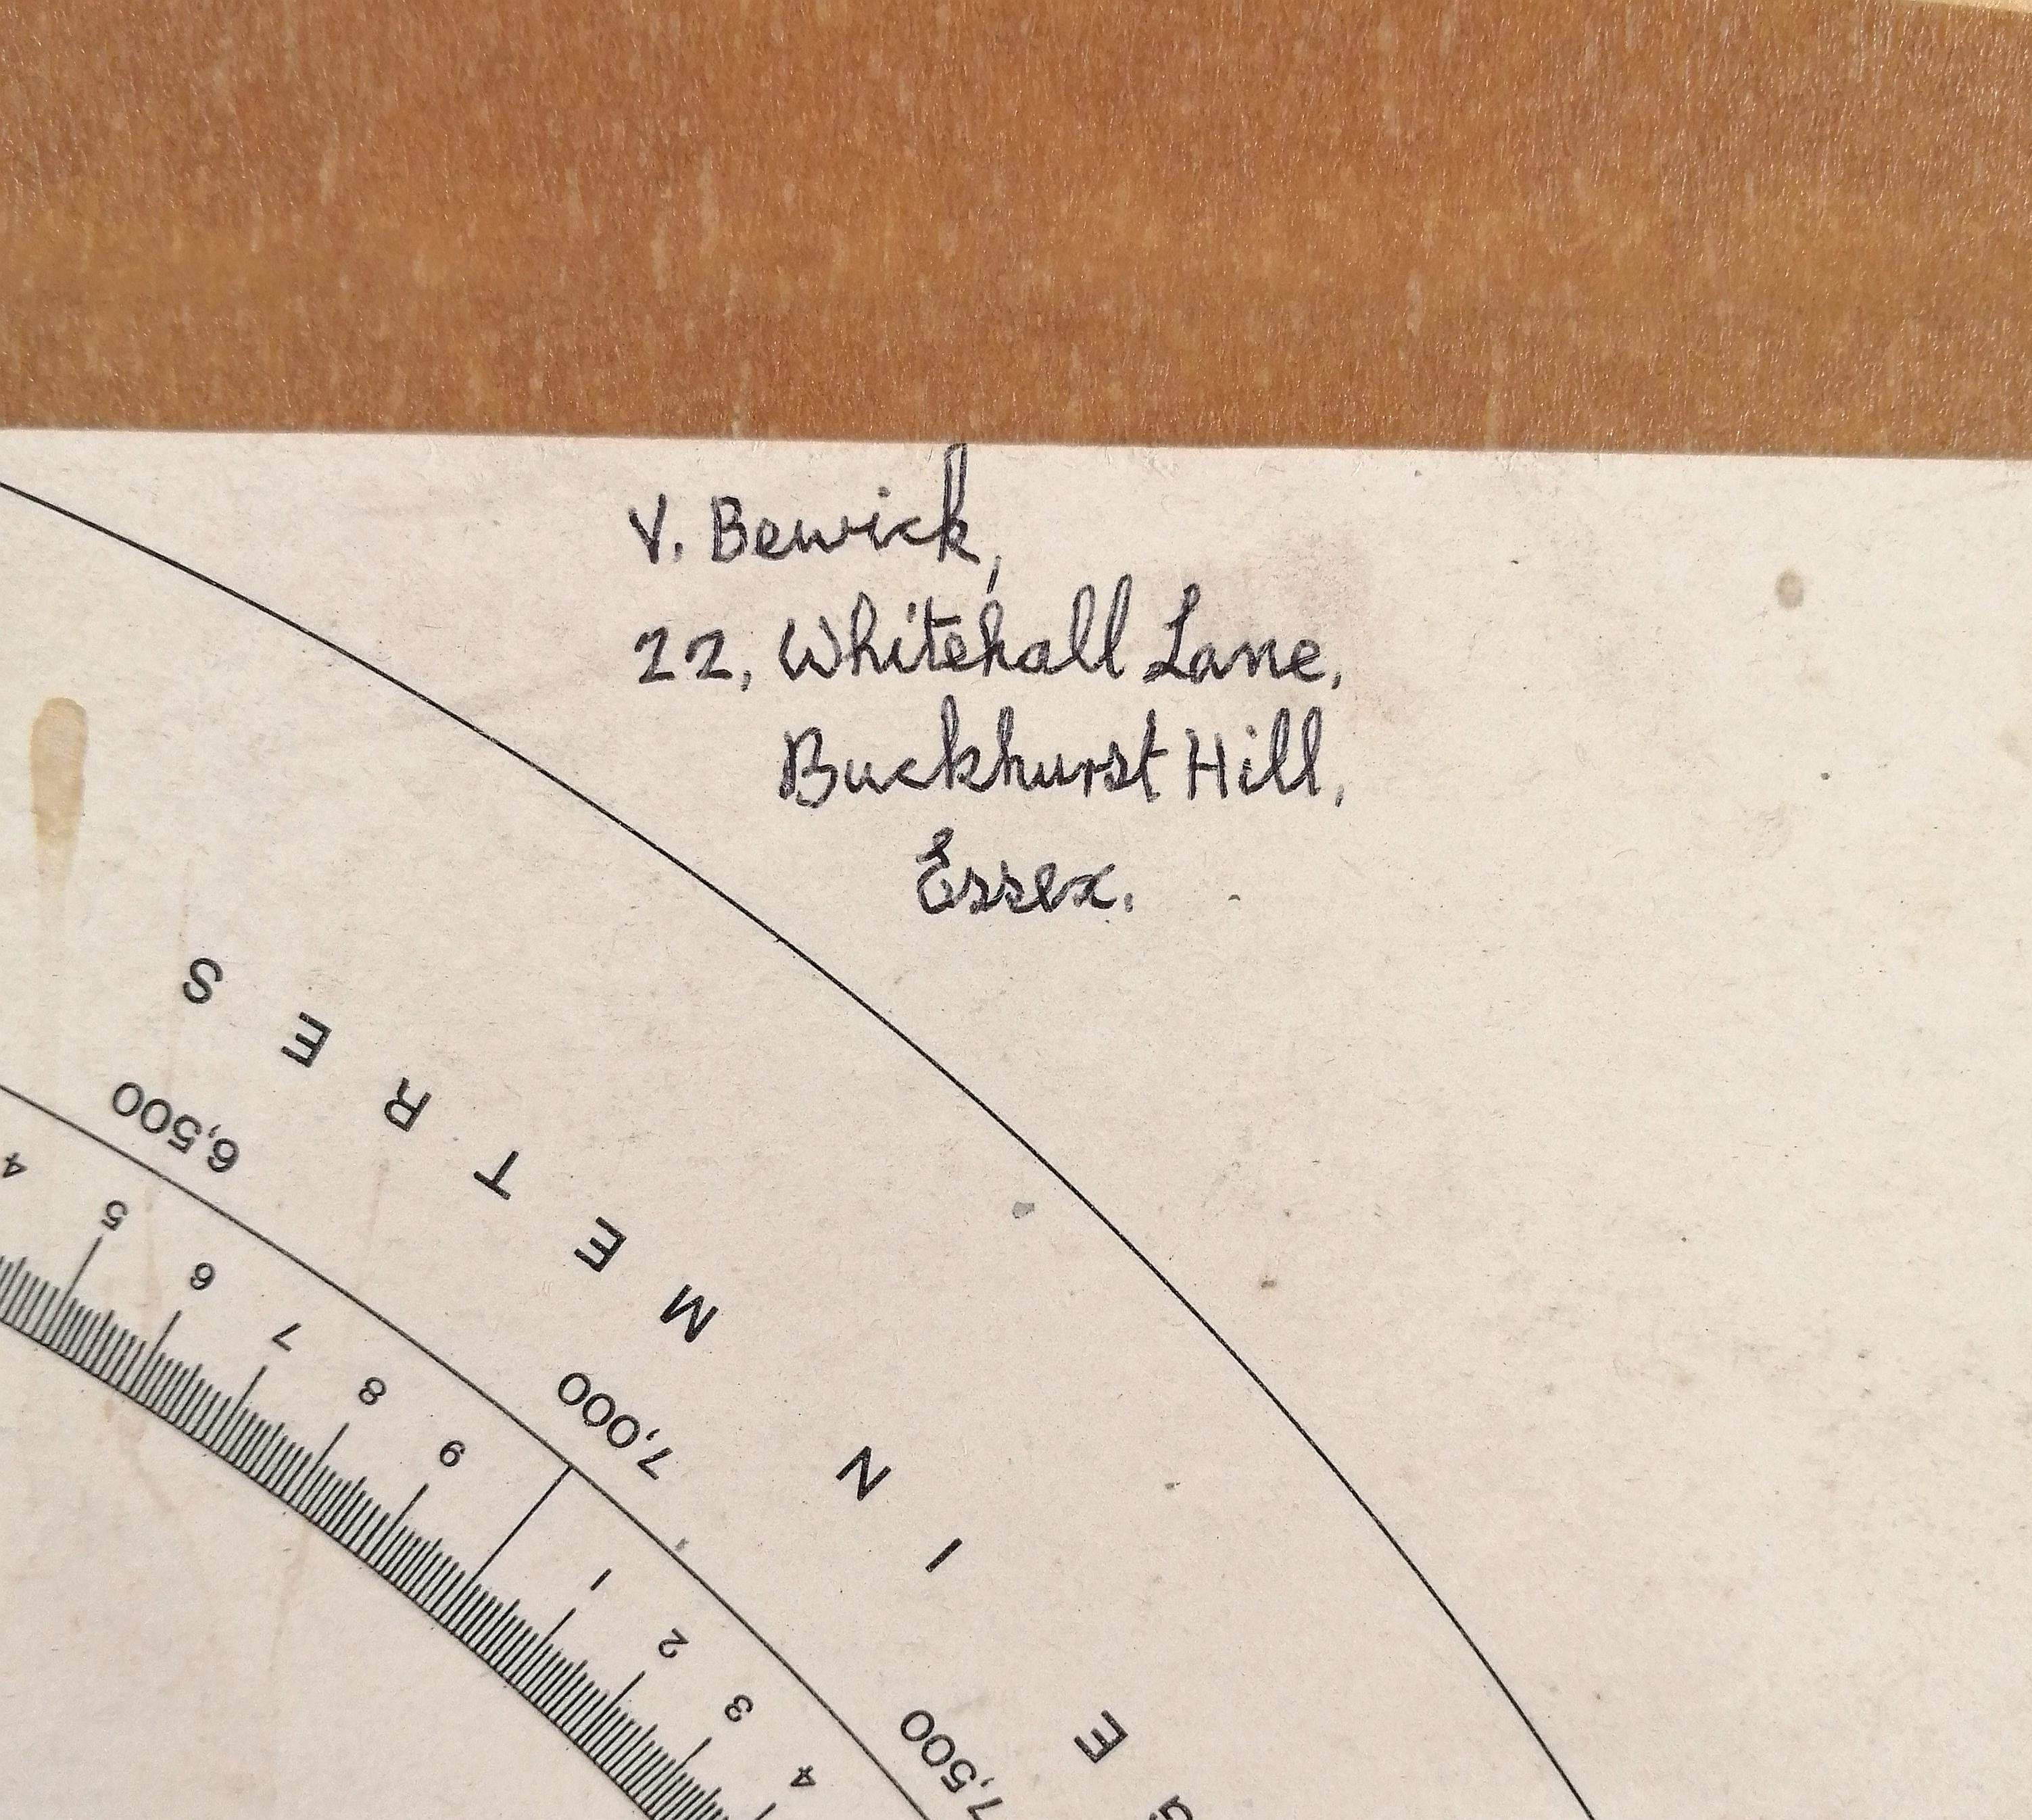 V. Bewick,
22, Whitehall Lane,
Buckhurst Hill,
Essex.
METRES
IN
6,500
7,000
7,500
4 5 6 7 8 9
1 2 3 4